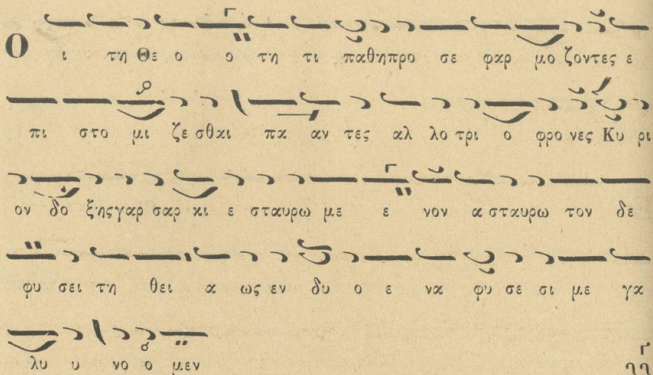 Ο ι τη Θε ο ο τη τι παθηπρο σε φαρ μο ζοντες ε
πι στο μι ζε σθαι πα αν τες αλ λο τρι ο φρο νες Κυ ρι
ον δο ξηςγαρ σαρ κι ε σταυρω με ε νον α σταυρω τον δε
φυ σει τη θει α ως εν δυ ο ε να φυ σε σι με γα
λυ υ νο ο μεν